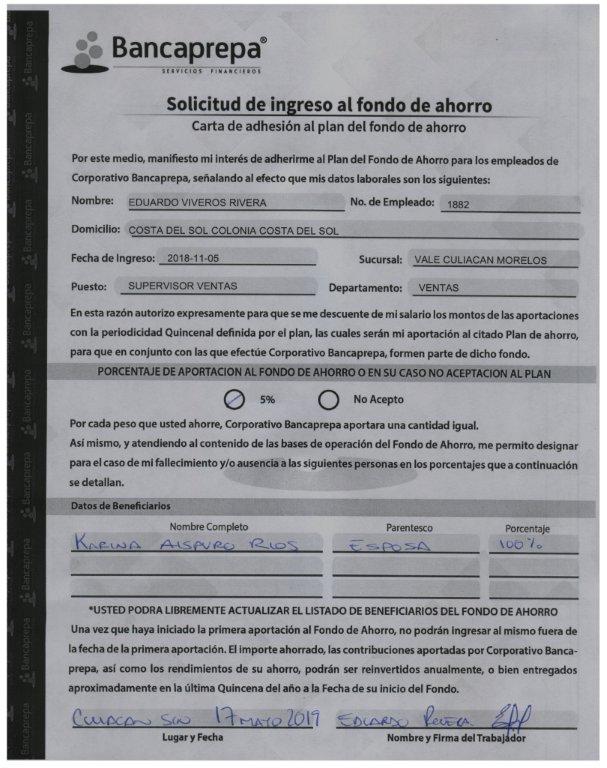 Bancaprepa®
SERVICIOS FINANCIEROS
Solicitud de ingreso al fondo de ahorro
Carta de adhesión al plan del fondo de ahorro
Por este medio, manifiesto mi interés de adherirme al Plan del Fondo de Ahorro para los empleados de
Corporativo Bancaprepa, señalando al efecto que mis datos laborales son los siguientes:
Nombre: EDUARDO VIVEROS RIVERA No. de Empleado: 1882
Domicilio: COSTA DEL SOL COLONIA COSTA DEL SOL
Fecha de Ingreso: 2018-11-05 Sucursal: VALE CULIACAN MORELOS
Puesto: SUPERVISOR VENTAS Departamento: VENTAS
En esta razón autorizo expresamente para que se me descuente de mi salario los montos de las aportaciones
con la periodicidad Quincenal definida por el plan, las cuales serán mi aportación al citado Plan de ahorro,
para que en conjunto con las que efectúe Corporativo Bancaprepa, formen parte de dicho fondo.
PORCENTAJE DE APORTACION AL FONDO DE AHORRO O EN SU CASO NO ACEPTACION AL PLAN
5% No Acepto
Por cada peso que usted ahorre, Corporativo Bancaprepa aportara una cantidad igual.
Así mismo, y atendiendo al contenido de las bases de operación del Fondo de Ahorro, me permito designar
para el caso de mi fallecimiento y/o ausencia a las siguientes personas en los porcentajes que a continuación
se detallan.
Datos de Beneficiarios
Nombre Completo Parentesco Porcentaje
KARINA AISPURO RIOS ESPOSA 100%
*USTED PODRA LIBREMENTE ACTUALIZAR EL LISTADO DE BENEFICIARIOS DEL FONDO DE AHORRO
Una vez que haya iniciado la primera aportación al Fondo de Ahorro, no podrán ingresar al mismo fuera de
la fecha de la primera aportación. El importe ahorrado, las contribuciones aportadas por Corporativo Banca-
prepa, así como los rendimientos de su ahorro, podrán ser reinvertidos anualmente, o bien entregados
aproximadamente en la última Quincena del año a la Fecha de su inicio del Fondo.
CULIACAN SIN 17 MAYO 2019 EDUARDO RIVERA
Lugar y Fecha Nombre y Firma del Trabajador